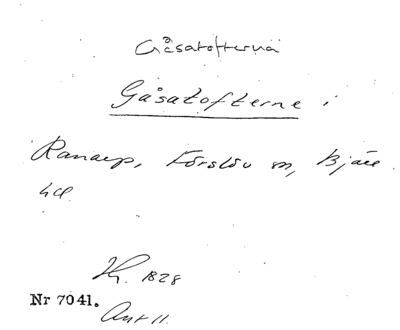 Gåsatofterna
Gåsatofterne i
Ranarp, Förslöv sn, Bjäre
hd.
K. 1828
Nr 7041.
Avt 11.